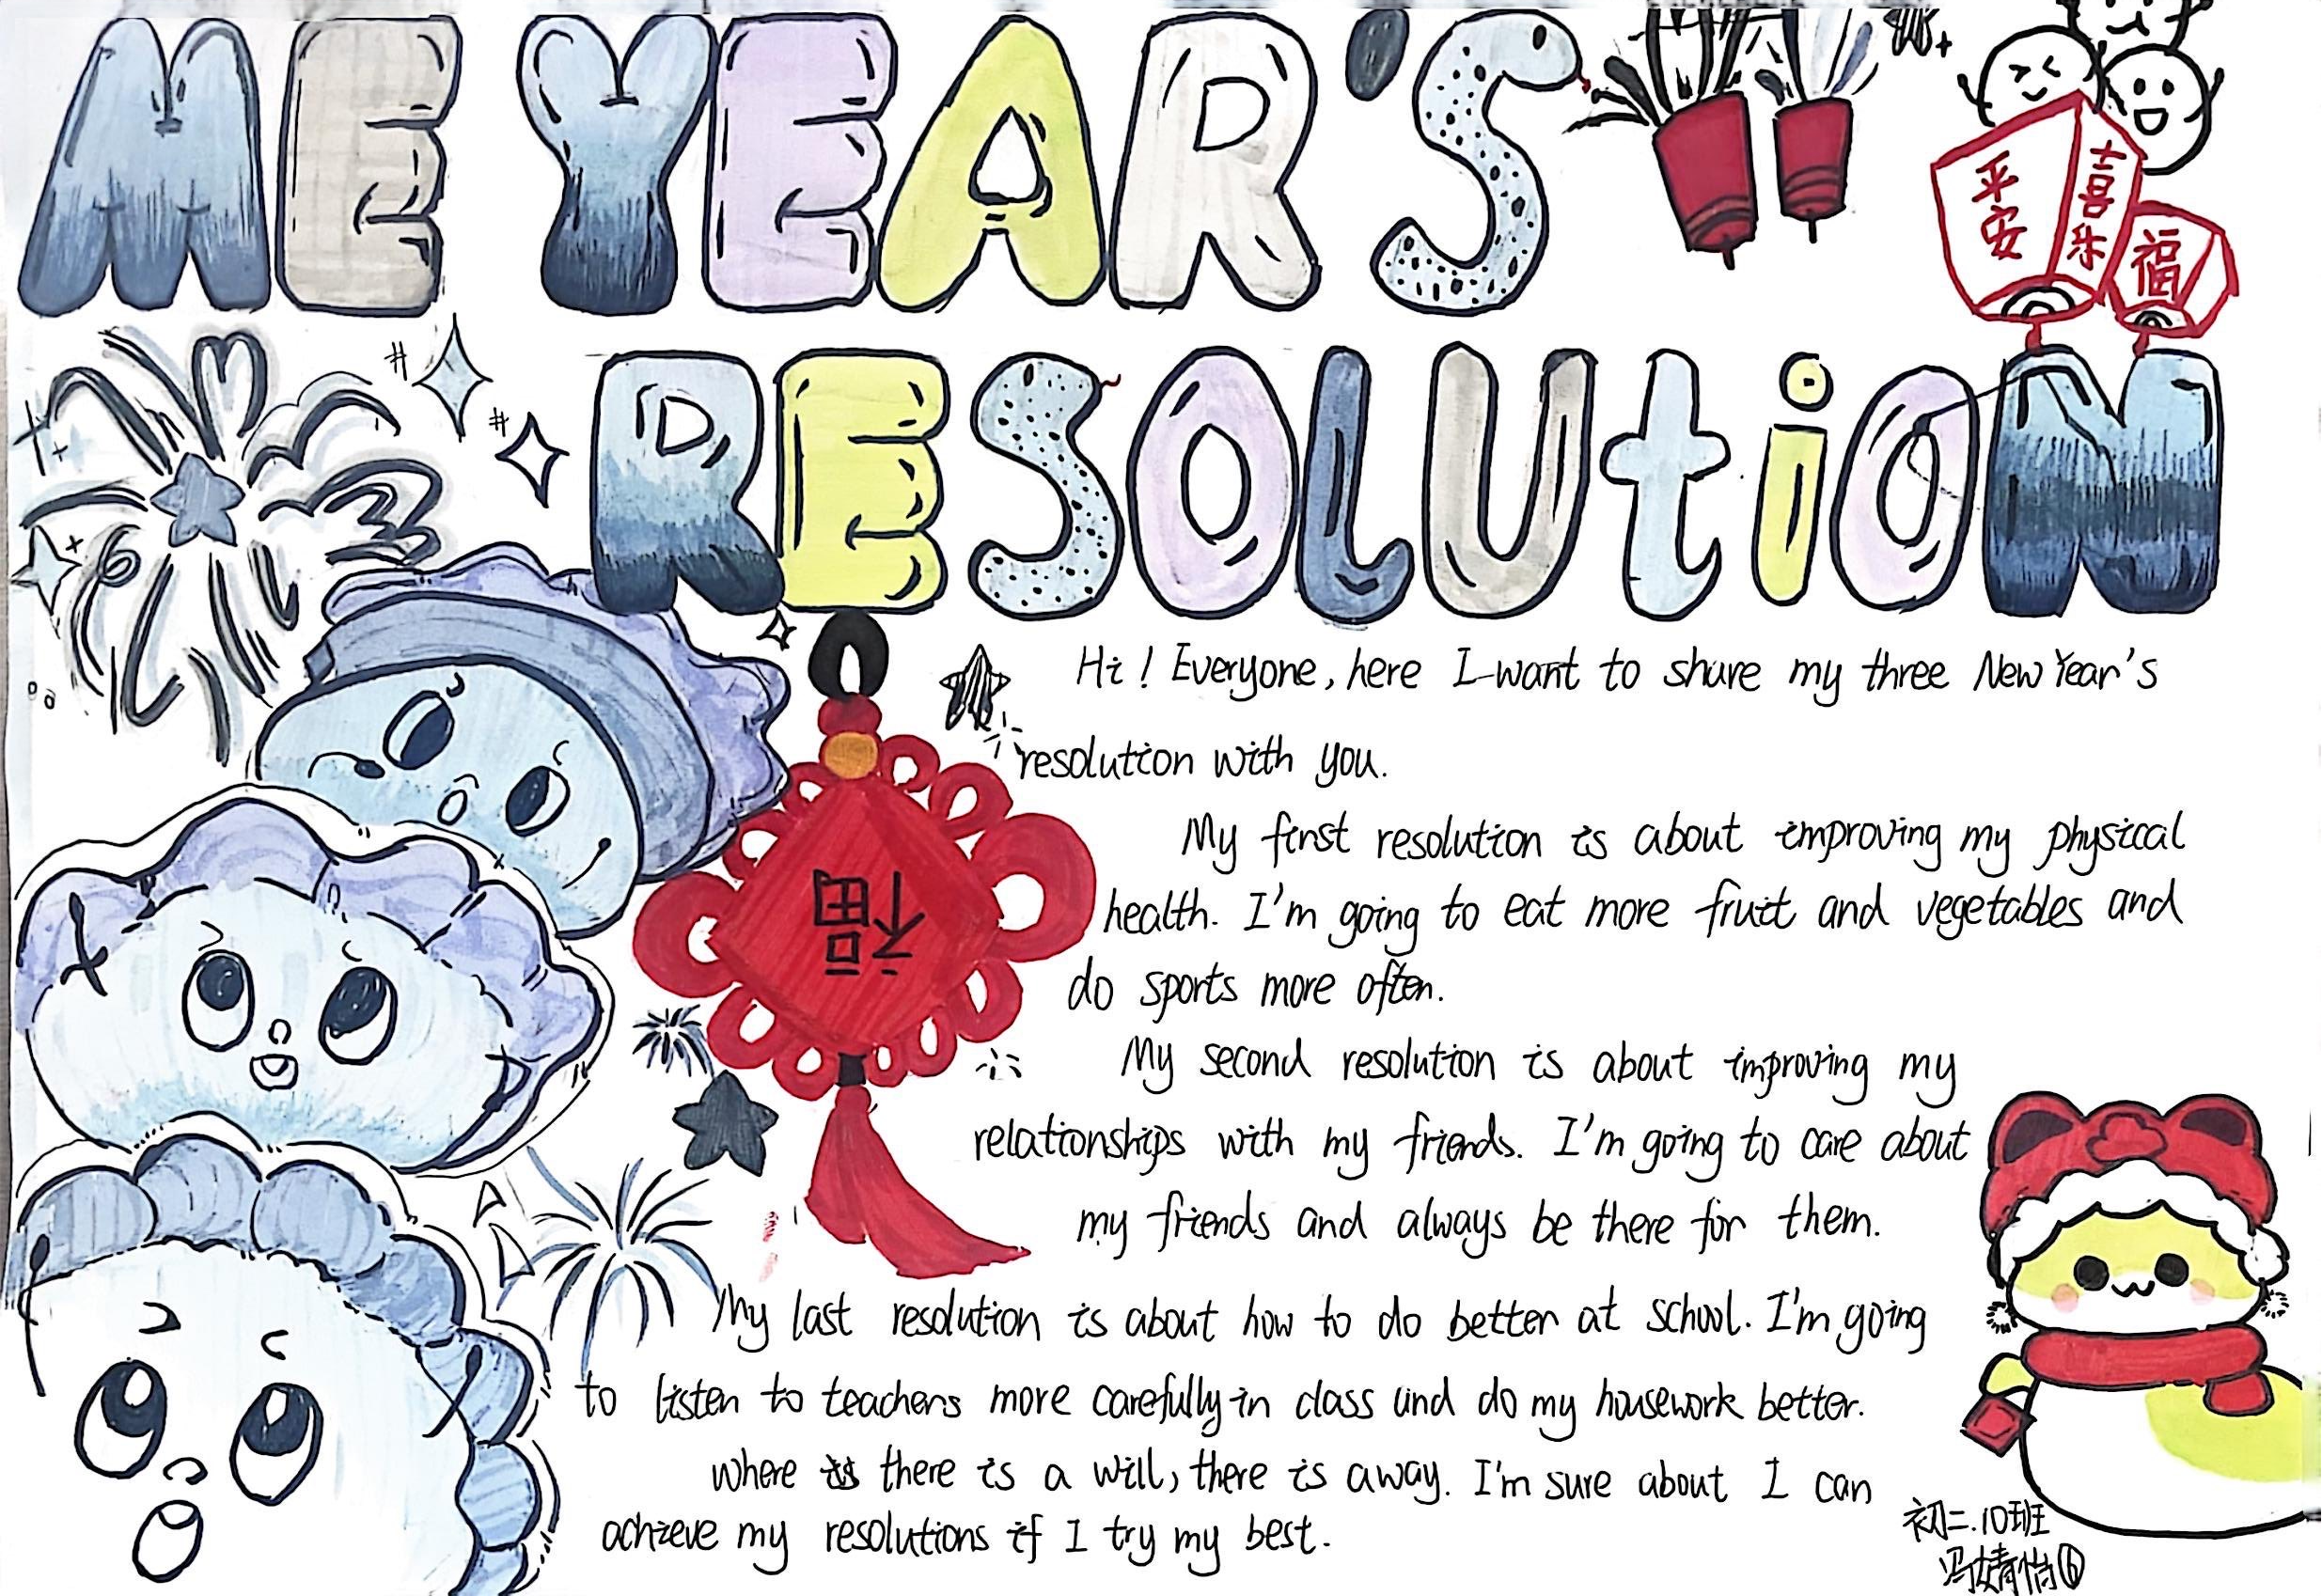 ME YEAR'S
平安
喜乐
福
RESOLUtiON
Hi! Everyone, here I want to share my three New Year's
resolution with you.
福
My first resolution is about improving my physical
health. I'm going to eat more fruit and vegetables and
do sports more often.
My second resolution is about improving my
relationships with my friends. I'm going to care about
my friends and always be there for them.
My last resolution is about how to do better at school. I'm going
to listen to teachers more carefully in class and do my housework better.
where is there is a will, there is away. I'm sure about I can
achieve my resolutions if I try my best.
初二.10班
冯婧怡⑥